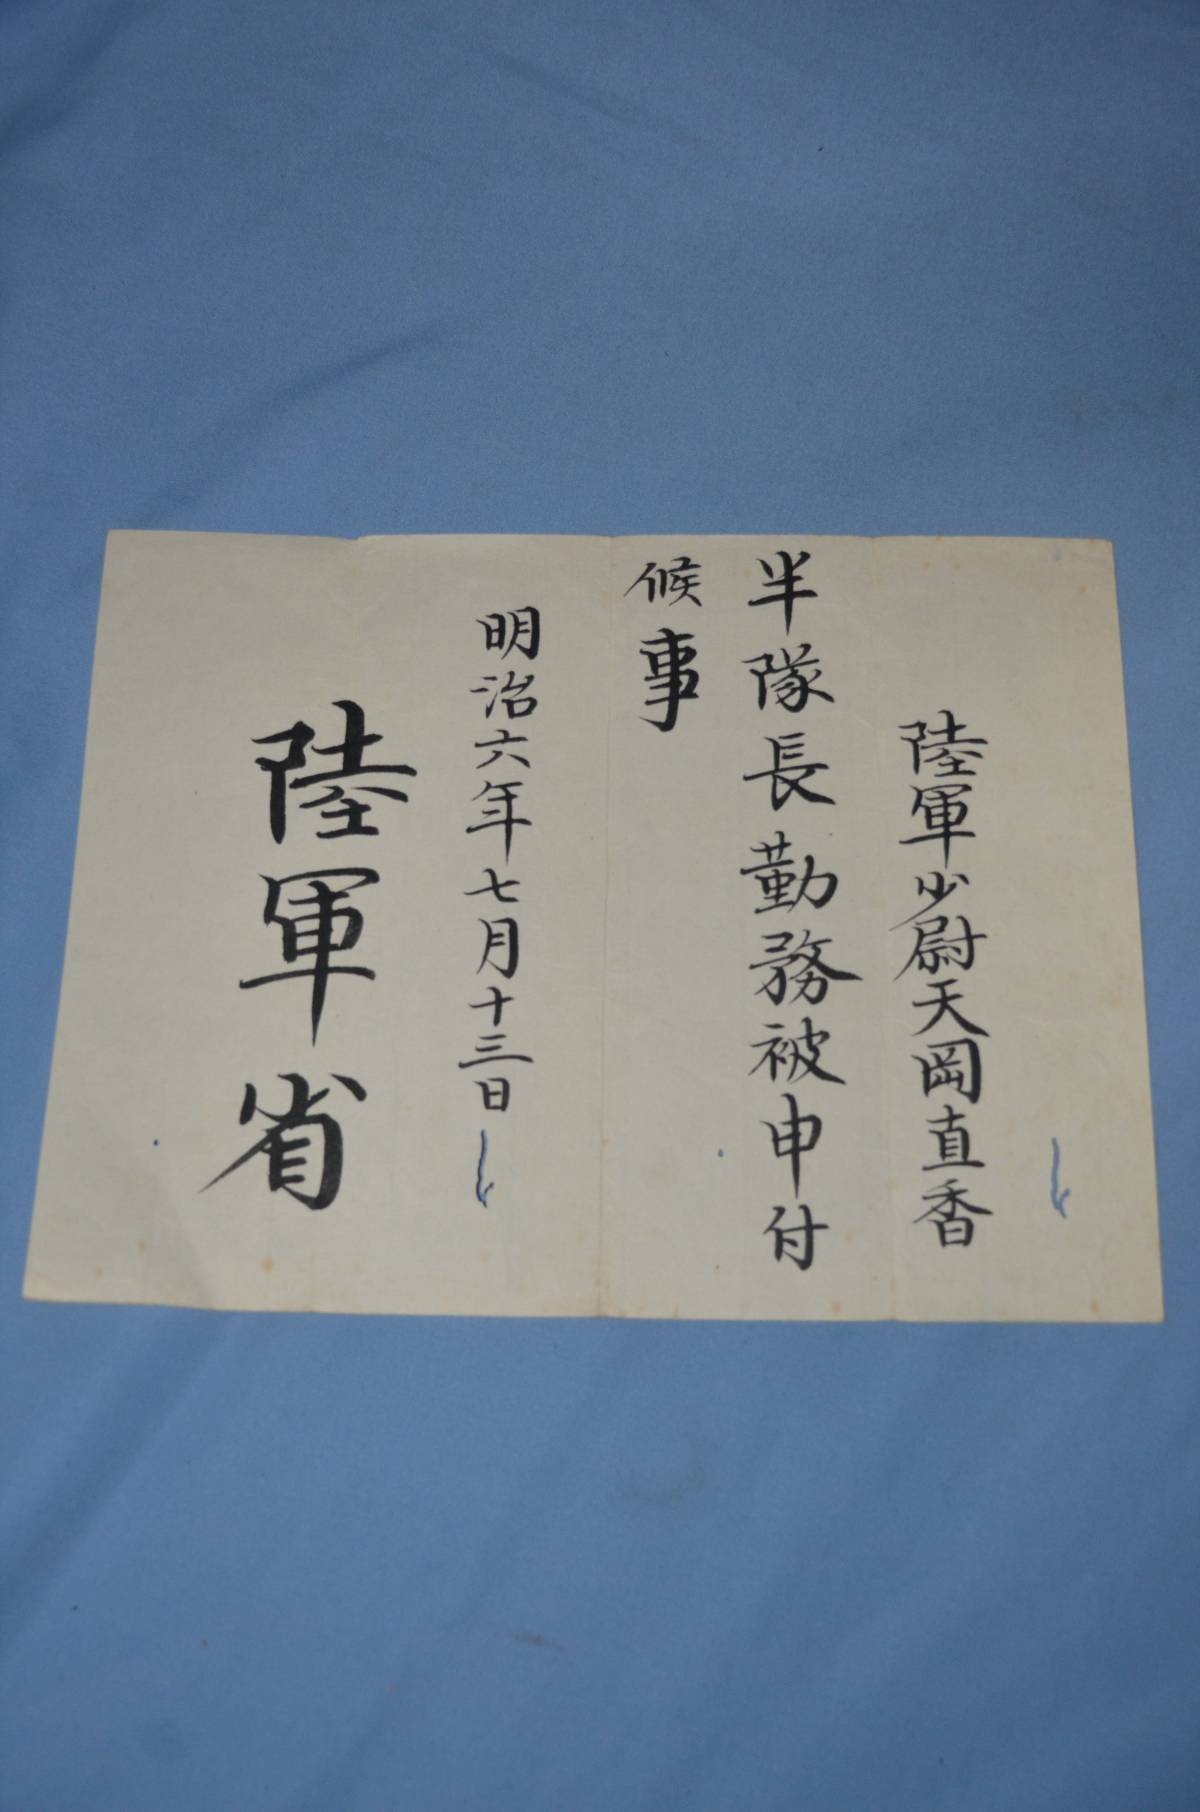 陸軍少尉天岡直香
半隊長勤務被申付
候事
明治六年七月十三日
陸軍省